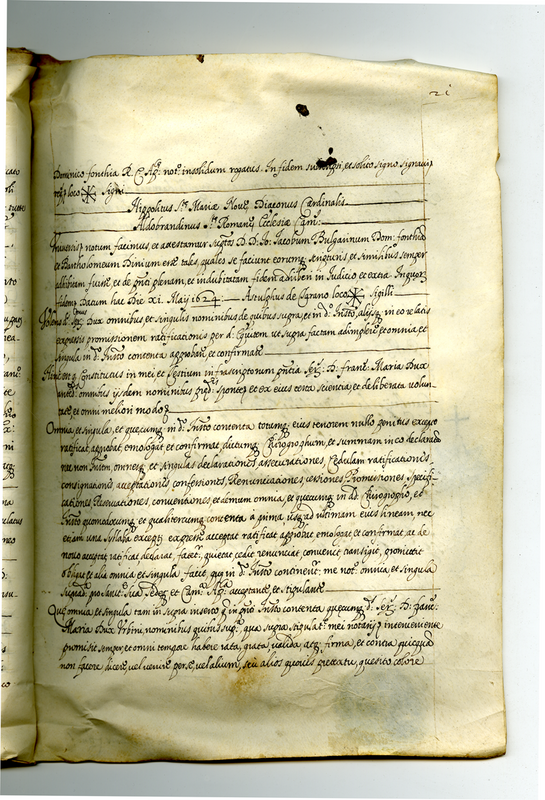 21
Dominico fonthia R. C. Ap. not. insolidum rogatus. In fidem subscripsi, et solito signo signavi
loco signi
Hippolitus S. Mariæ Novæ Diaconus Cardinalis
Aldobrandinus S. Romanæ Ecclesiæ Cam.
notum facimus, et attestamur D. D. Io. Iacobum Bulgarinum Dom. fonthia
et Bartholomeum Dinium esse tales, quales se faciunt eorumq. scripturis et similibus semper
adhibitam fuisse, et de plenam, et indubitatam fidem adhiberi in Iudicio et extra. In quor.
fidem Datum hac Die xi. Maij 1624 Astulphus de loco sigilli
Dux omnibus et singulis nominibus de quibus supra, et in d. Insto. in eo relatis
expressis promissionem ratificationis per d. Equitem ut supra factam adimplens et omnia et
singula in d. Insto contenta approbari et confirmari
Constitutus in mei et testium infrascriptorum D. Franc. Maria Dux
omnibus ijsdem nominibus sponte et ex eius certa scientia, et deliberata volun-
tate, et omni meliori modo
Omnia et singula, et quecumq. in d. Insto contenta totumq. eius tenorem nullo penitus excepto
ratificat, approbat, emologat et confirmat dictumq. Chirographum, et summam in eo declarata
nec non omnes, et singulas declarationes asseverationes, Cedulam ratificationis,
consignationis, acceptationes confessiones, Renunciationes, cessiones, Promissiones
Reservationes, conventiones, et omnia, et quecumq. in d. Chirographo, et
Insto quomodocumq. et qualitercumq. contenta a prima usq. ad ultimam eius lineam, nec
etiam una syllaba excepta expresse acceptat ratificat approbat emologat et confirmat, ac de
novo acceptat ratificat declarat, fatet., quietat cedit renunciat, convenit transigit, promittit
obligat et alia omnia et singula facit, que in d. Insto continent. me not. omnia et singula
pro dict. Sede, et Cam. Ap. acceptante, et stipulante
Que omnia et singula tam in supra inserto q. in Insto contenta quecumq. d. D. Franc.
Maria Dux Urbini, nominibus quibus sup. qua supra stipulat. mei notarij interveniente
promisit semper, et omni tempore habere rata, grata, valida, atq. firma, et contra quicquam
non facere dicere, vel venire per se, vel alium, seu alios quovis pretextu, quesito colore